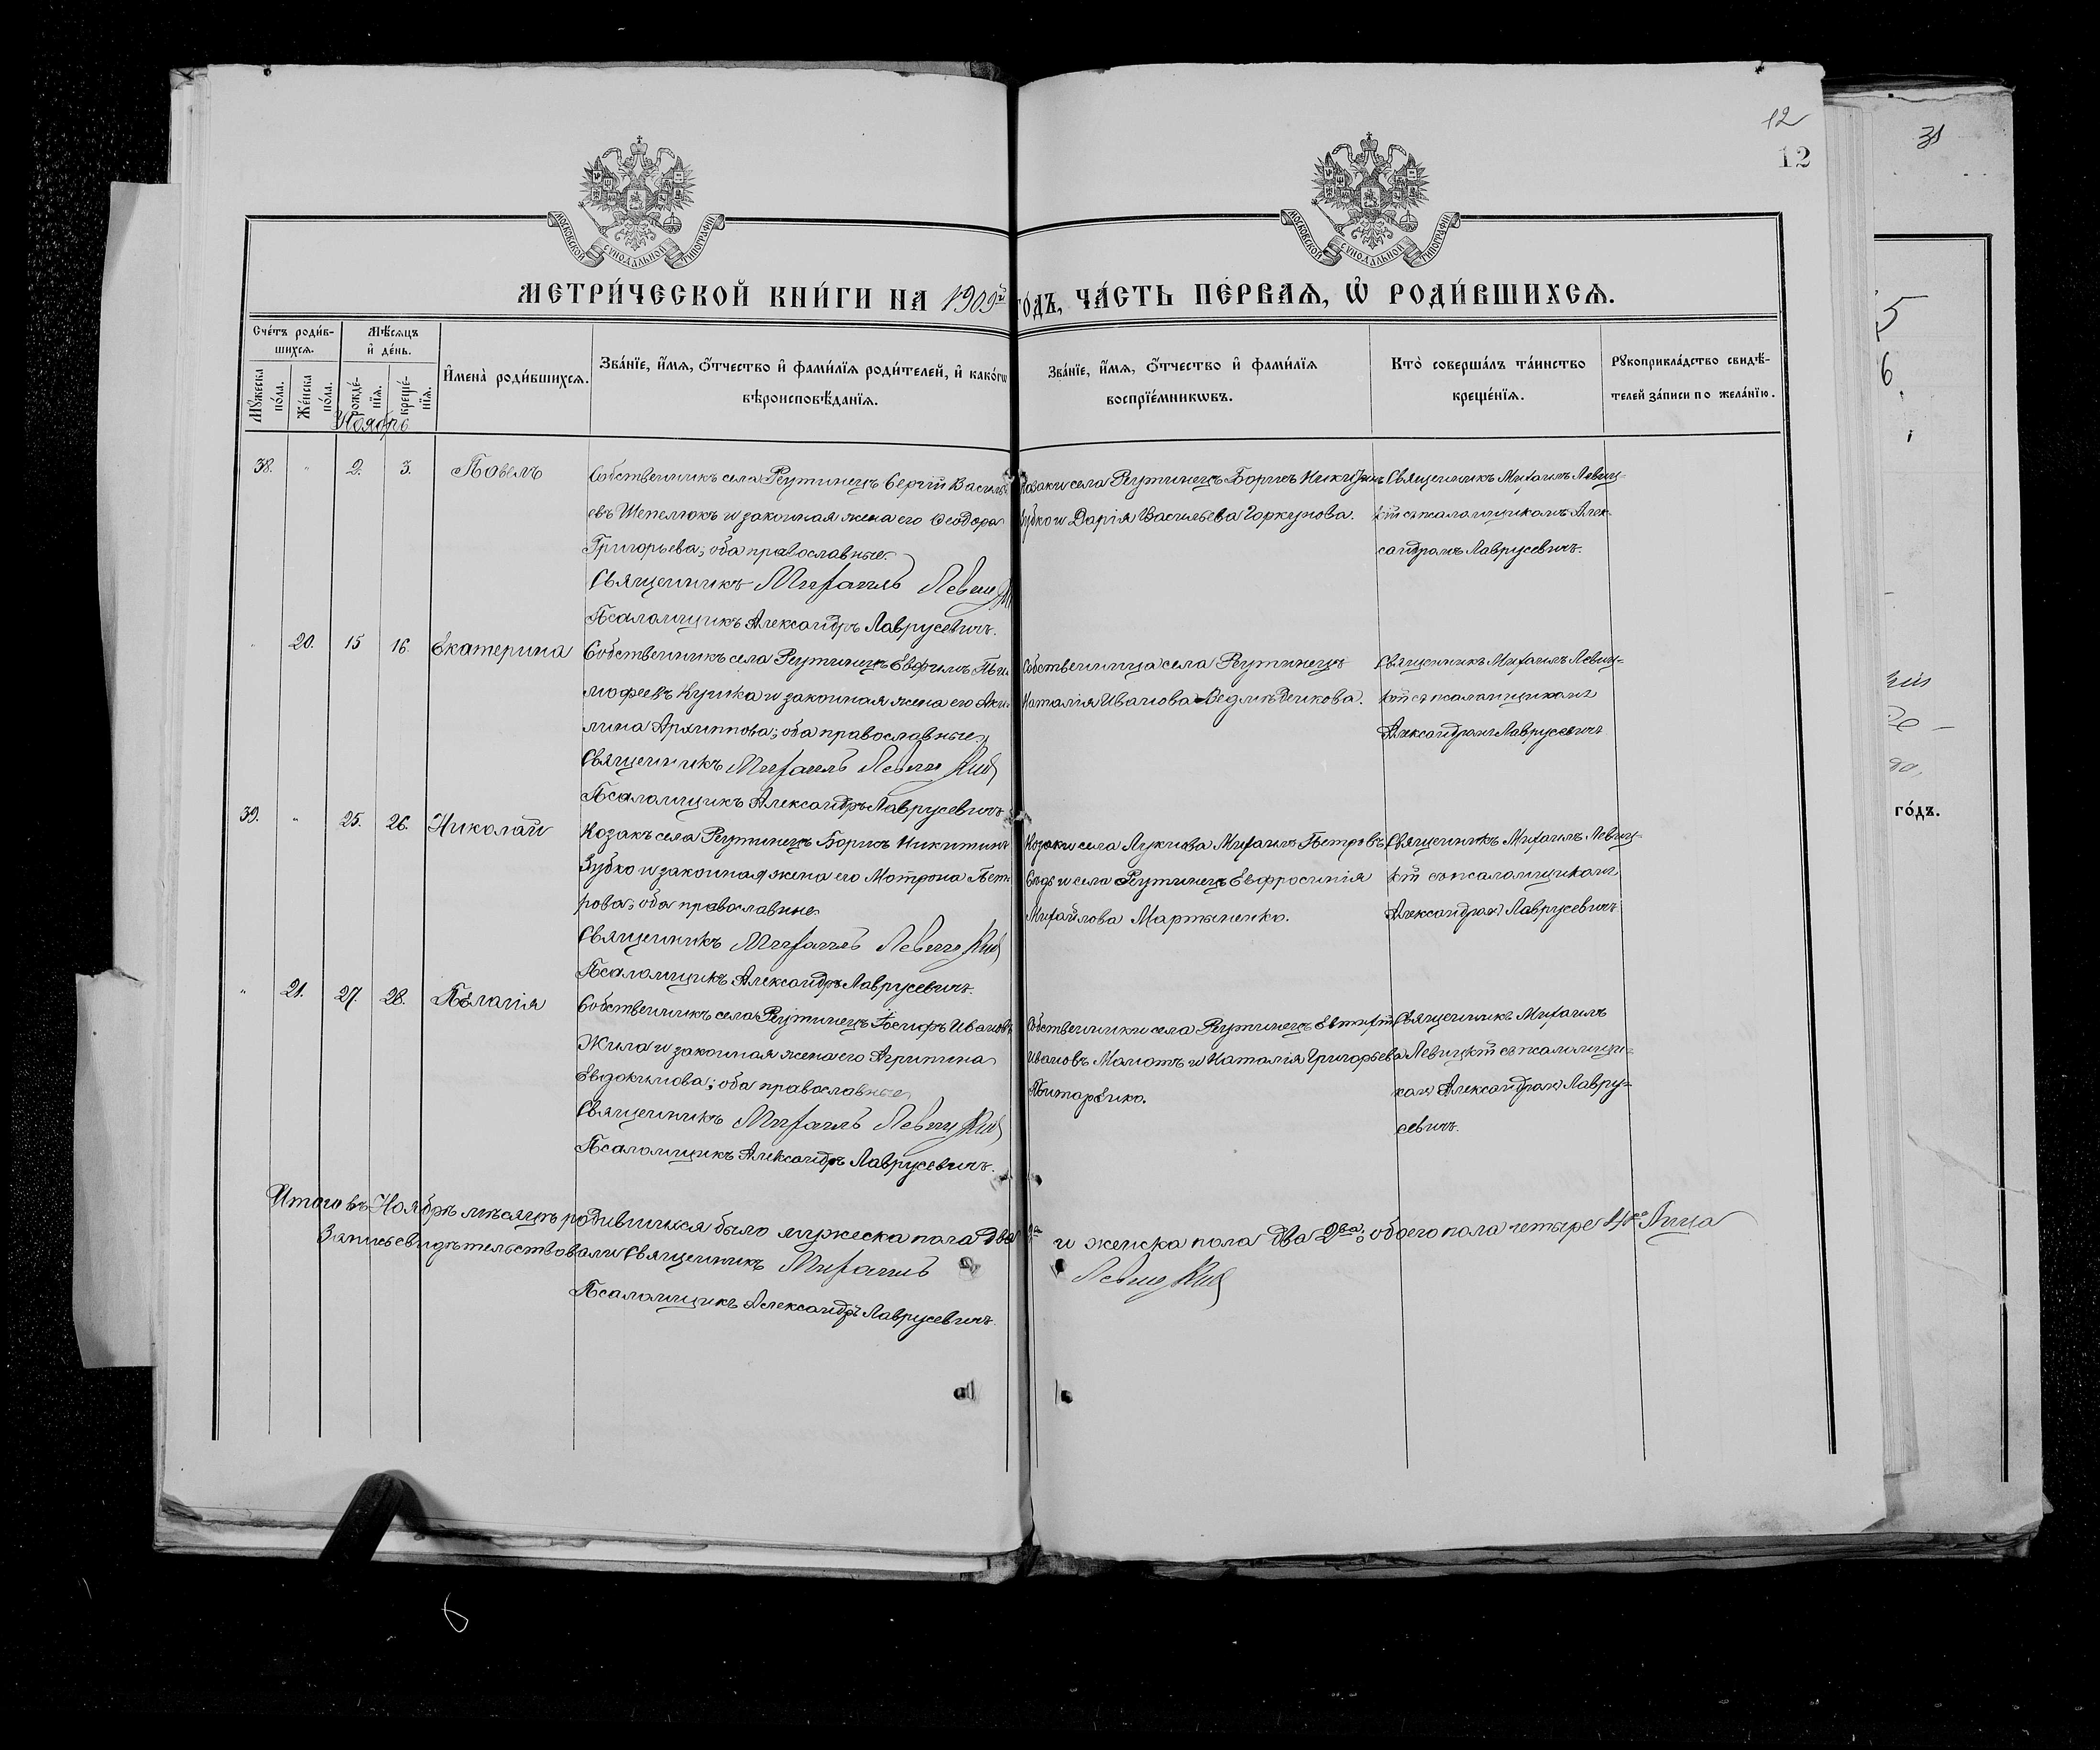 12
12
31
МОСКОВСКОЙ СѴНОДАЛЬНОЙ ТИПОГРАФІИ
МОСКОВСКОЙ СѴНОДАЛЬНОЙ ТИПОГРАФІИ
МЕТРИ́ЧЕСКОЙ КНИ́ГИ НА 1909й ГО́ДЪ, ЧА́СТЬ ПЕ́РВАЯ, Ѡ҆ РОДИ́ВШИХСЯ.
Сче́тъ роди́в-
шихся.
Му́жеска по́ла.
Же́нска по́ла.
Мѣ́сяцъ
и҆ де́нь.
рожде́-
нїя.
креще́-
нїя.
И҆мена̀ роди́вшихся.
Зва́нїе, и҆́мя, ѻ҆́тчество и҆ фами́лїя роди́телей, и҆ како́гѡ
вѣроисповѣ́данїя.
Зва́нїе, и҆́мя, ѻ҆́тчество и҆ фами́лїя
воспрїе́мникѡвъ.
Кто̀ соверша́лъ та́инство
креще́нїя.
Рꙋкоприкла́дство свидѣ́-
телей за́писи по жела́нїю.
Ноябрь
38. " 2. 3. Павелъ
Собственникъ села Реутинецъ Сергій Василь-
евъ Шепелюкъ и законная жена его Ѳеодора
Григорьева; оба православные.
Священникъ Михаилъ Левицкій
Псаломщикъ Александръ Лаврусевичъ.
Козаки села Реутинецъ Борисъ Никитинъ
Зубко и Дарія Васильева Горкунова.
Священникъ Михаилъ Левиц-
кій съ псаломщикомъ Алек-
сандромъ Лаврусевичъ.
" 20. 15 16. Екатерина
Собственникъ села Реутинецъ Евфимъ Ти-
мофеевъ Кушка и законная жена его Аки-
лина Архиппова; оба православные.
Священникъ Михаилъ Левицкій
Псаломщикъ Александръ Лаврусевичъ
Собственница села Реутинецъ
Наталія Иванова Ведмѣденкова.
Священникъ Михаилъ Левиц-
кій съ псаломщикомъ
Александромъ Лаврусевичъ
39. " 25. 26. Николай
Козакъ села Реутинецъ Борисъ Никитинъ
Зубко и законная жена его Мотрона Пет-
рова; оба православные.
Священникъ Михаилъ Левицкій
Псаломщикъ Александръ Лаврусевичъ.
Козаки села Лукнова Михаилъ Петровъ
и села Реутинецъ Евфросинія
Михайлова Мартыненко.
Священникъ Михаилъ Левиц-
кій съ псаломщикомъ
Александромъ Лаврусевичъ
" 21. 27. 28. Пелагія
Собственникъ села Реутинецъ Іосифъ Ивановъ
Жила и законная жена его Агрипина
Евдокимова; оба православные
Священникъ Михаилъ Левицкій
Псаломщикъ Александръ Лаврусевичъ.
Собственники села Реутинецъ Евтихій
Ивановъ Мамотъ и Наталія Григорьева
Священникъ Михаилъ
Левицкій съ псаломщи-
комъ Александромъ Лавру-
севичъ.
Итого въ Ноябрѣ мѣсяцѣ родившихся было мужеска пола два 2а и женска пола два 2ва; обоего пола четыре 4ре лица
Запись свидѣтельствовали Священникъ Михаилъ Левицкій
Псаломщикъ Александръ Лаврусевичъ.
5
6.
го́дъ.
6